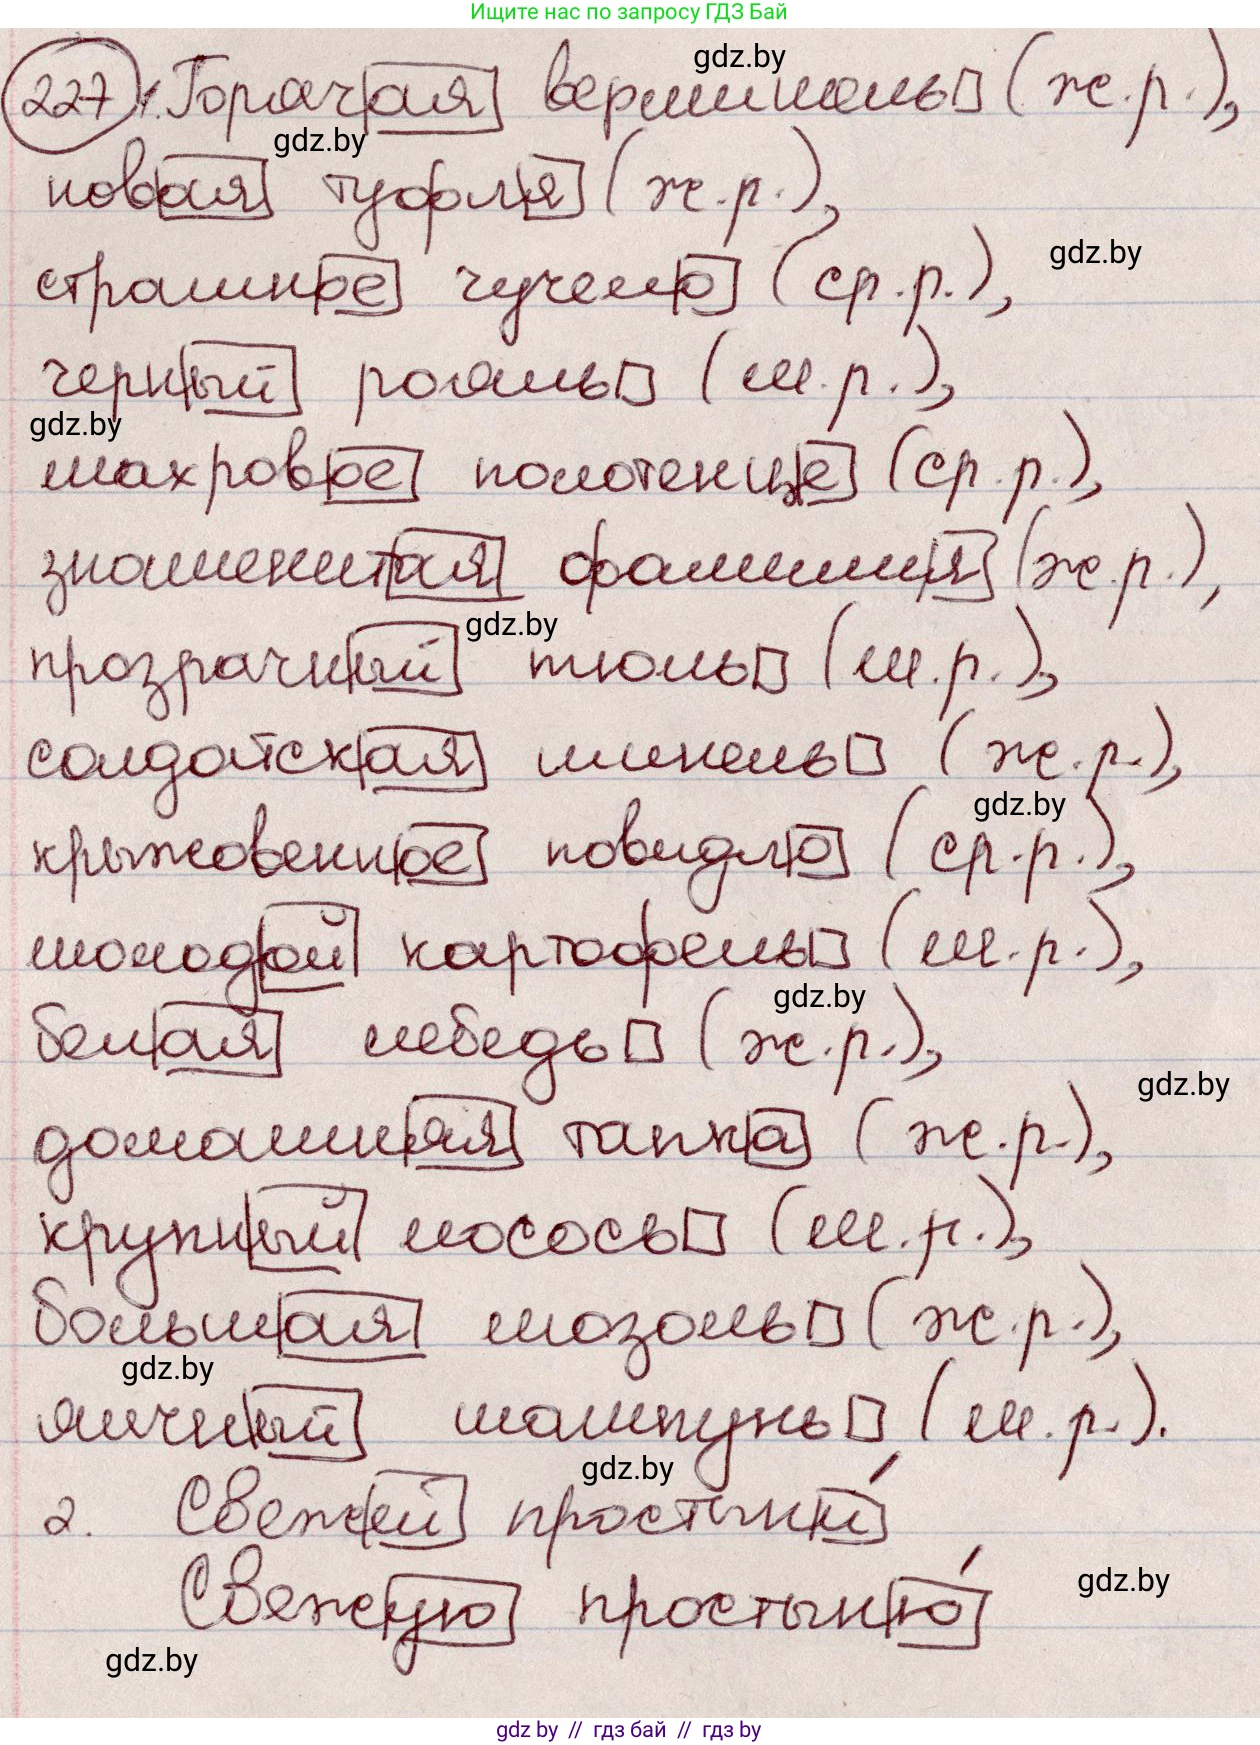 Ищите нас по запросу ГДЗ Бай
gdz.by
227 1. Горячая вермишель (ж.р.),
gdz.by
новая туфля (ж.р.),
gdz.by
страшное чучело (ср.р.),
черный рояль (м.р.),
gdz.by
махровое полотенце (ср.р.),
знаменитая фамилия (ж.р.),
gdz.by
прозрачный тюль (м.р.),
солдатская шинель (ж.р.),
gdz.by
крыжовенное повидло (ср.р.),
молодой картофель (м.р.),
gdz.by
белая лебедь (ж.р.),
gdz.by
домашняя тапка (ж.р.),
крупный лосось (м.р.),
большая мозоль (ж.р.),
gdz.by
яичный шампунь (м.р.).
gdz.by
2. Свежей простыни́
Свежую простыню́
gdz.by
gdz.by
gdz by // гдз бай // гдз by